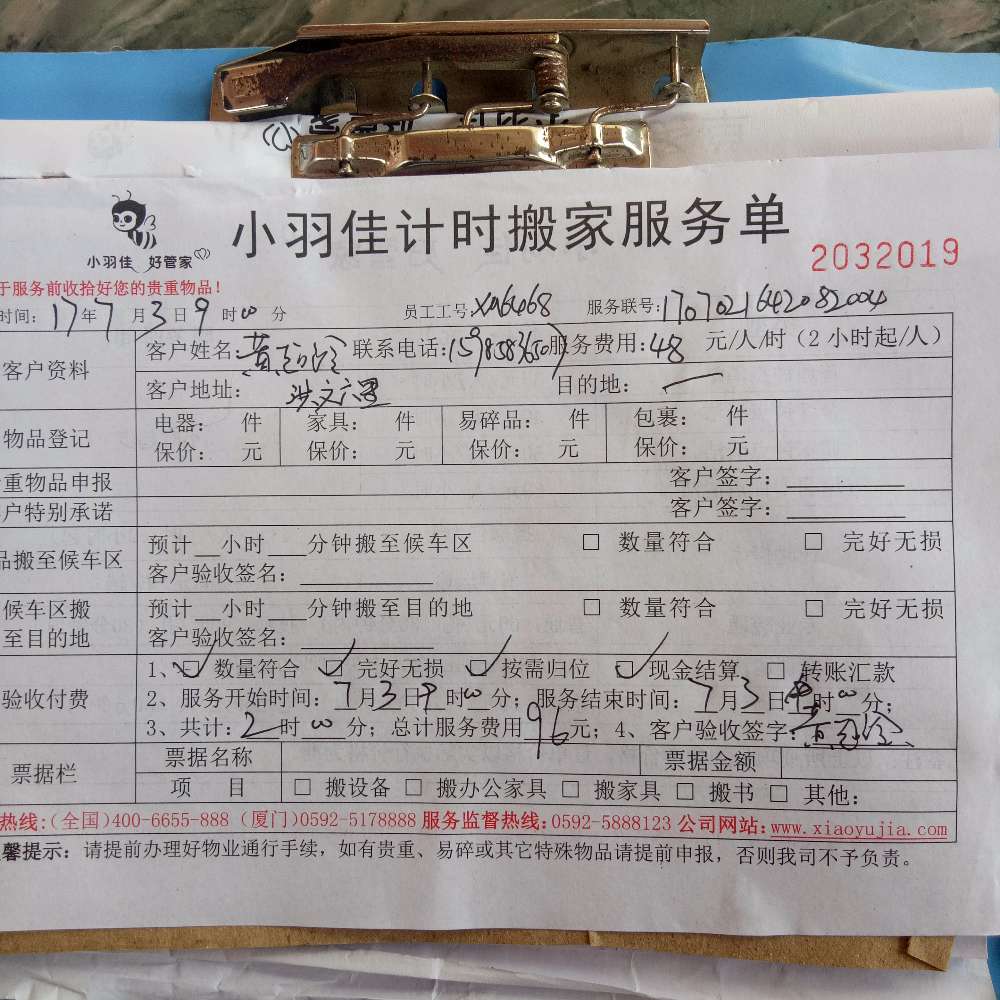 小羽佳 好管家
小羽佳计时搬家服务单
2032019
于服务前收拾好您的贵重物品！
时间：17年7月3日9时00分 员工工号：XA6468 服务联号：1707021642082004
客户资料 客户姓名：黄 联系电话： 服务费用：48 元/人/时（2小时起/人）
客户地址：洪文六里 目的地：一
物品登记 电器： 件 家具： 件 易碎品： 件 包裹： 件
保价： 元 保价： 元 保价： 元 保价： 元
重物品申报 客户签字：
户特别承诺 客户签字：
品搬至候车区 预计 小时 分钟搬至候车区 □ 数量符合 □ 完好无损
客户验收签名：
候车区搬至目的地 预计 小时 分钟搬至目的地 □ 数量符合 □ 完好无损
客户验收签名：
验收付费 1、☑ 数量符合 ☑ 完好无损 ☑ 按需归位 ☑ 现金结算 □ 转账汇款
2、服务开始时间：7月3日9时00分；服务结束时间：7月3日 时00分；
3、共计：2时00分；总计服务费用96元；4、客户验收签字：黄
票据栏 票据名称 票据金额
项 目 □ 搬设备 □ 搬办公家具 □ 搬家具 □ 搬书 □ 其他：
热线：(全国)400-6655-888 (厦门)0592-5178888 服务监督热线：0592-5888123 公司网站：www.xiaoyujia.com
馨提示：请提前办理好物业通行手续，如有贵重、易碎或其它特殊物品请提前申报，否则我司不予负责。